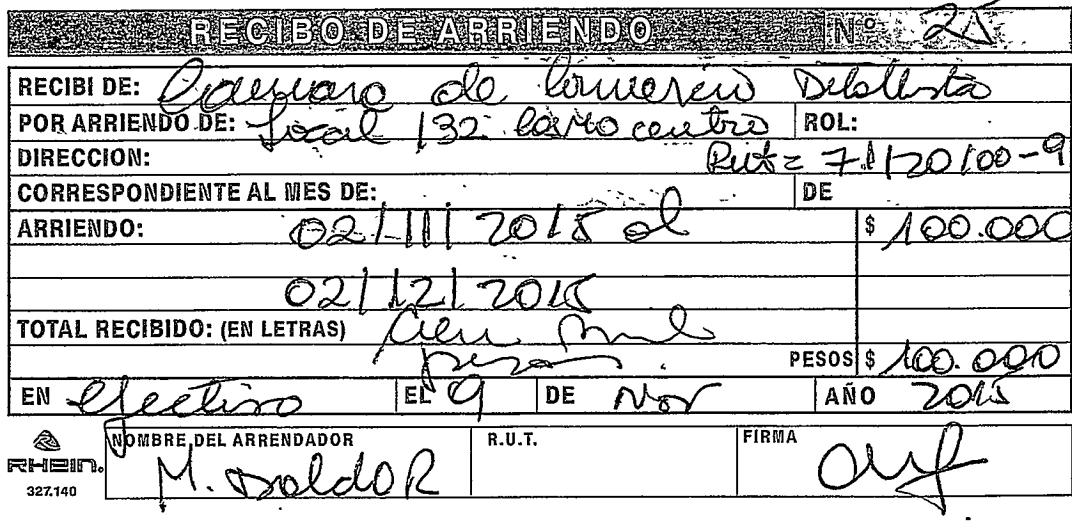 RECIBO DE ARRIENDO Nº 25
RECIBI DE: Camara de Comercio Detallista
POR ARRIENDO DE: Local 132 centro ROL:
DIRECCION: Rut = 71120100-9
CORRESPONDIENTE AL MES DE: DE
ARRIENDO: 02/11/2015 al $ 100.000
02/12/2015
TOTAL RECIBIDO: (EN LETRAS) Cien mil
pesos. PESOS $ 100.000
EN efectivo EL 9 DE Nov AÑO 2015
NOMBRE DEL ARRENDADOR R.U.T. FIRMA
RHEIN.
M.
327.140